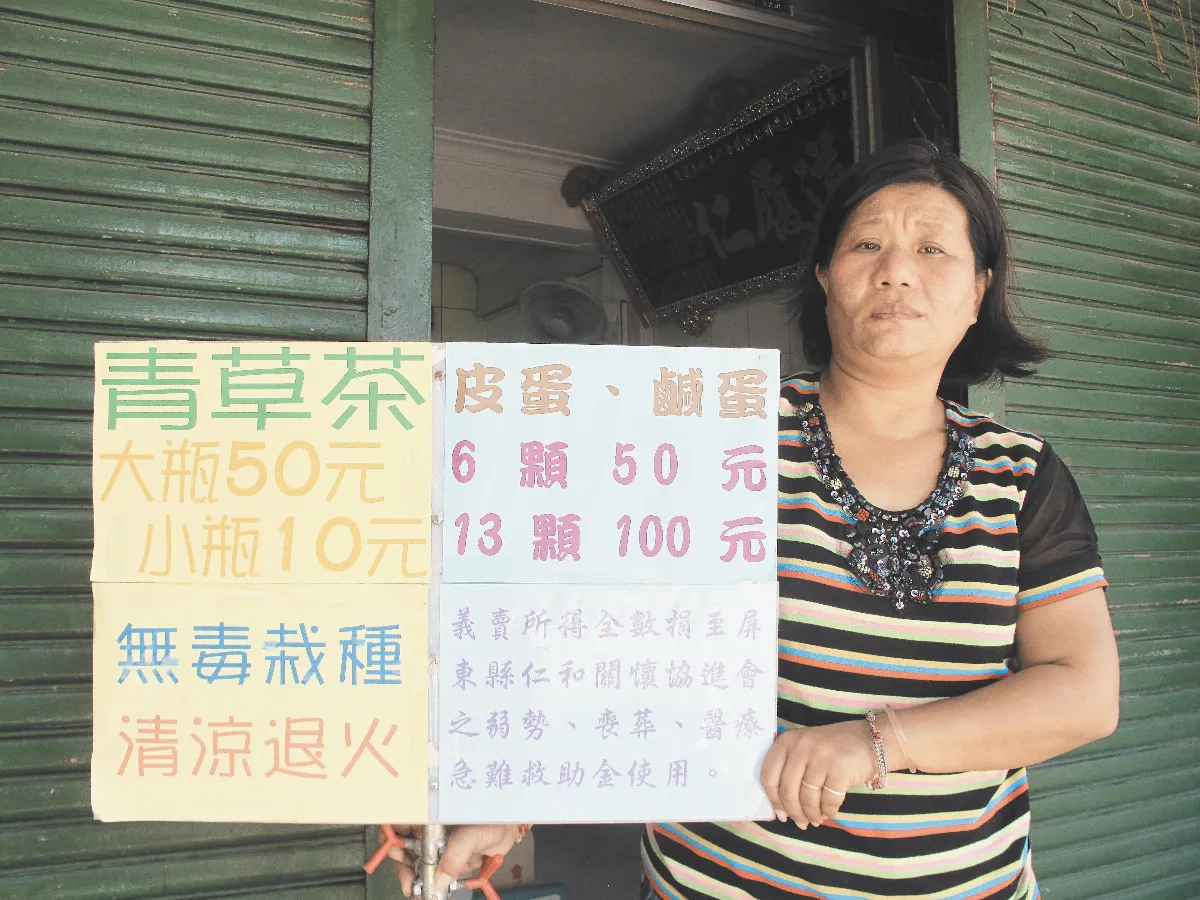 青草茶
大瓶50元
小瓶10元
無毒栽種
清涼退火
皮蛋、鹹蛋
6 顆 50 元
13 顆 100 元
義賣所得全數捐至屏
東縣仁和關懷協進會
之弱勢、喪葬、醫療
急難救助金使用。